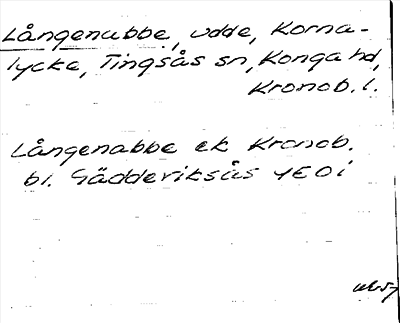 Långenabbe, udde, Korna-
lycke, Tingsås sn, Konga hd,
Kronob. l.
Långenabbe ek Kronob.
bl. Gädderiksås 4E0i